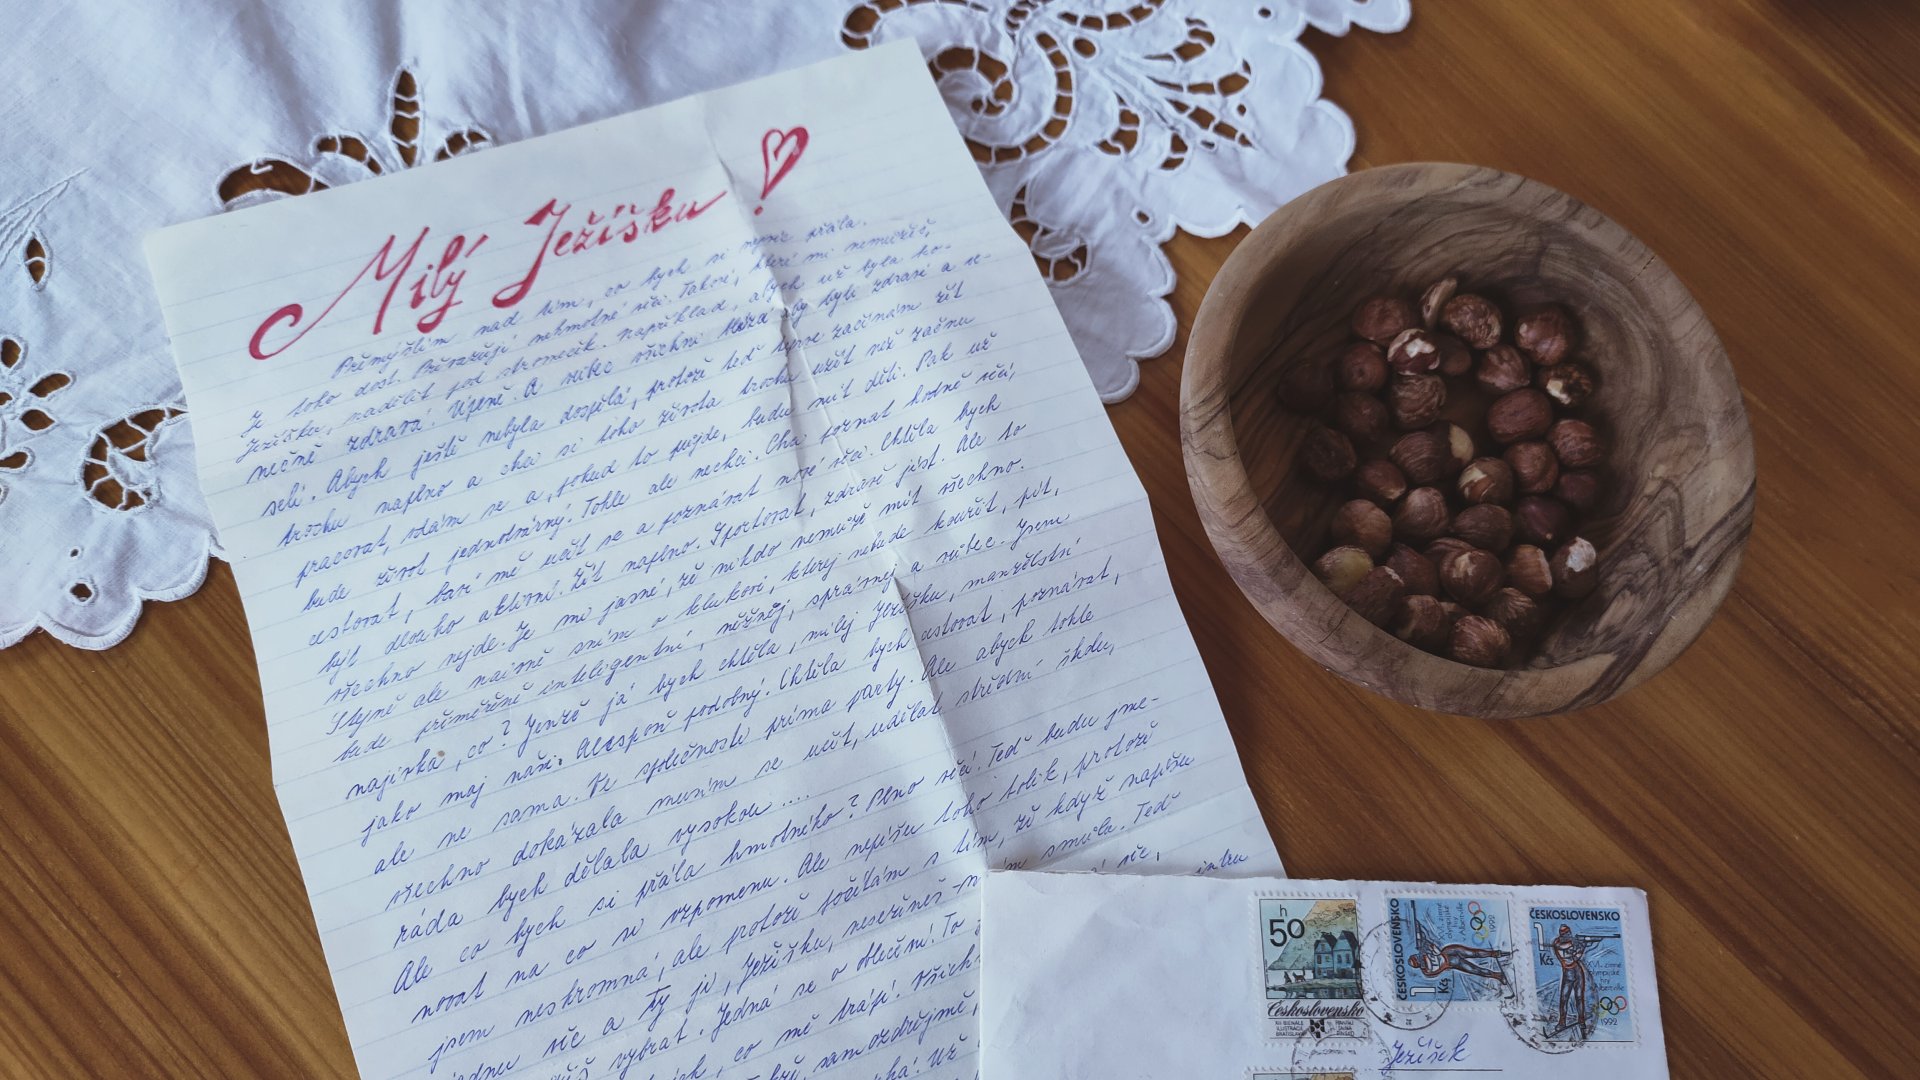 Milý Ježíšku!
Přemýšlím nad tím, co bych si nejvíc přála.
Je toho dost. Převažují nehmotné věci. Takové, které mi nemůžeš,
Ježíšku, nadělit pod stromeček. Například, abych už byla ko-
nečně zdravá! Úplně. A vůbec všichni kéž aby byli zdraví a ve-
selí. Abych ještě nebyla dospělá, protože teď teprve začínám žít
trochu naplno a chci si toho života trochu užít než začnu
pracovat, vdám se a, pokud to půjde, budu mít děti. Pak už
bude život jednotvárný. Tohle ale nechci. Chci poznat hodně věcí,
cestovat, baví mě učit se a poznávat nové věci. Chtěla bych
být dlouho aktivní. Žít naplno. Sportovat, zdravě jíst. Ale to
všechno nejde. Je mi jasné, že nikdo nemůže mít všechno.
Stejně ale naivně sním o klukovi, kterej nebude kouřit, pít,
bude přiměřeně inteligentní, něžnej, správnej a vůbec. Jsem
naivka, co? Jenže já bych chtěla, milej Ježíšku, manželství
jako maj naši. Alespoň podobný. Chtěla bych cestovat, poznávat,
ale ne sama. Ve společnosti príma party. Ale abych tohle
všechno dokázala musím se učit, udělat střední školu,
ráda bych dělala vysokou ....
Ale co bych si přála hmotného? Plno věcí! Teď budu jme-
novat na co si vzpomenu. Ale nepíšu toho tolik, protože
jsem neskromná, ale protože počítám s tím, že když napíšu
jednu věc a Ty ji, Ježíšku, neseženeš smůla. Teď
vybrat. Jedná se o oblečení! To
co mě trápí! Všich
50 h
Československo
XIII BIENÁLE
ILUSTRÁCIÍ
BRATISLAVA
ČESKOSLOVENSKO
1 Kčs
XVI. zimné
olympijské
hry
Albertville
1992
ČESKOSLOVENSKO
1 Kčs
XVI. zimné
olympijské
hry
Albertville
1992
Ježíšek